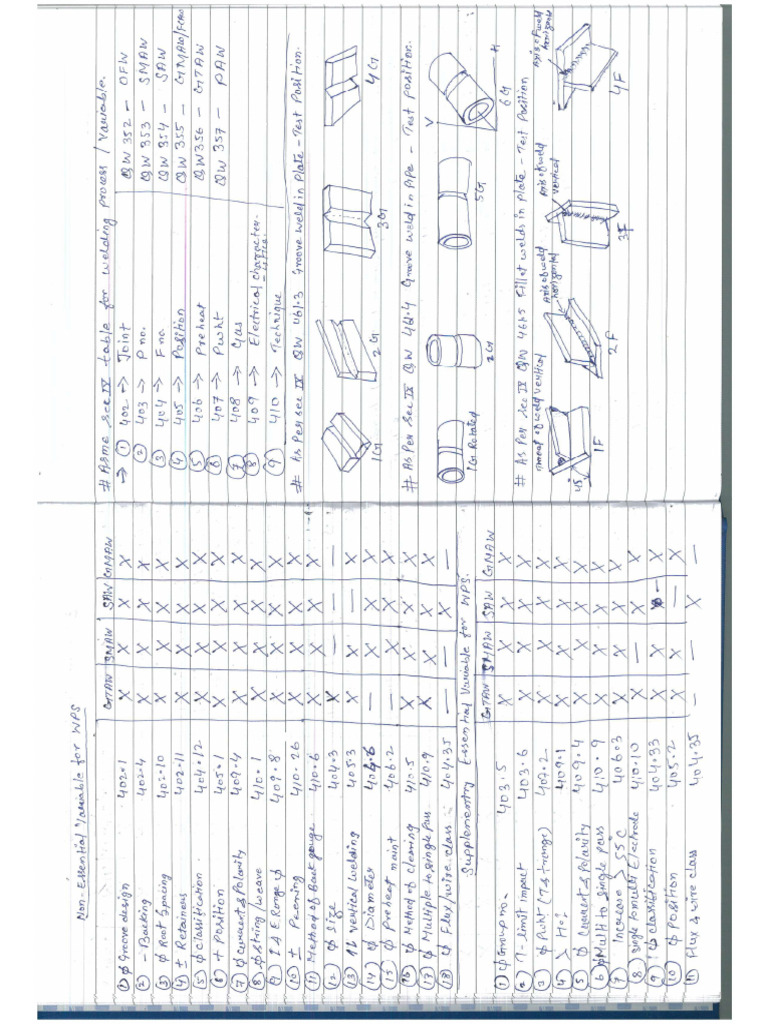 Non-Essential Variable for WPS
GTAW SMAW SAW GMAW
① ϕ Groove design 402.1 X X X X
② - Backing 402.4 X X X X
③ ϕ Root Spacing 402.10 X X X X
④ ± Retainers 402.11 X X X X
⑤ ϕ classification 404.12 X X X X
⑥ + Position 405.1 X X X X
⑦ ϕ current & Polarity 409.4 X X X X
⑧ ϕ string/weave 410.1 X X X X
⑨ I & E Range ϕ 409.8 X X X X
⑩ ± Peening 410.26 X X X X
⑪ Method of Back gouge 410.6 X X X X
⑫ ϕ Size 404.3 X — — —
⑬ vertical welding 405.3 X X — X
⑭ ϕ Diameter 404.6 — X X X
⑮ ϕ Preheat maint 406.2 — X X X
⑯ ϕ Method of cleaning 410.5 X X X X
⑰ ϕ Multiple to single Pass 410.9 X X X X
⑱ ϕ Flux/wire class 404.35 — — X —
Supplementry Essential Variable for WPS.
GTAW SMAW SAW GMAW
① ϕ Group no. 403.5 X X X X
② T-limit impact 403.6 X X X X
③ ϕ PWHT (T & t range) 407.2 X X X X
④ > H.I 409.1 X X X X
⑤ ϕ current & Polarity 409.4 X X X X
⑥ ϕ Multi to single pass 410.9 X X X X
⑦ Increase > 55°C 406.3 X X X X
⑧ single to multi Electrode 410.10 X — X X
⑨ ϕ classification 404.33 X X — X
⑩ ϕ Position 405.2 X X — X
⑪ Flux & wire class 404.35 — — X —
# Asme sec IX table for welding process / Variable.
→ ① 402 → Joint QW 352 - OFW
② 403 → P no. QW 353 - SMAW
③ 404 → F no. QW 354 - SAW
④ 405 → Position QW 355 - GMAW/FCAW
⑤ 406 → Preheat QW 356 - GTAW
⑥ 407 → Pwht QW 357 - PAW
⑦ 408 → Gas
⑧ 409 → Electrical character-
-istics
⑨ 410 → Technique
# As Per sec IX QW 461.3 Groove weld in Plate - Test Position.
1G 2G 3G 4G
# As Per Sec IX QW 461.4 Groove weld in Pipe - Test position.
1G Rotated 2G 5G 6G
V H
# As Per sec IX QW 461.5 Fillet welds in plate - Test Position
of weld vertical
Axis of weld
horizontal
Axis of weld
vertical
Axis of weld
horizontal
45°
1F 2F 3F 4F